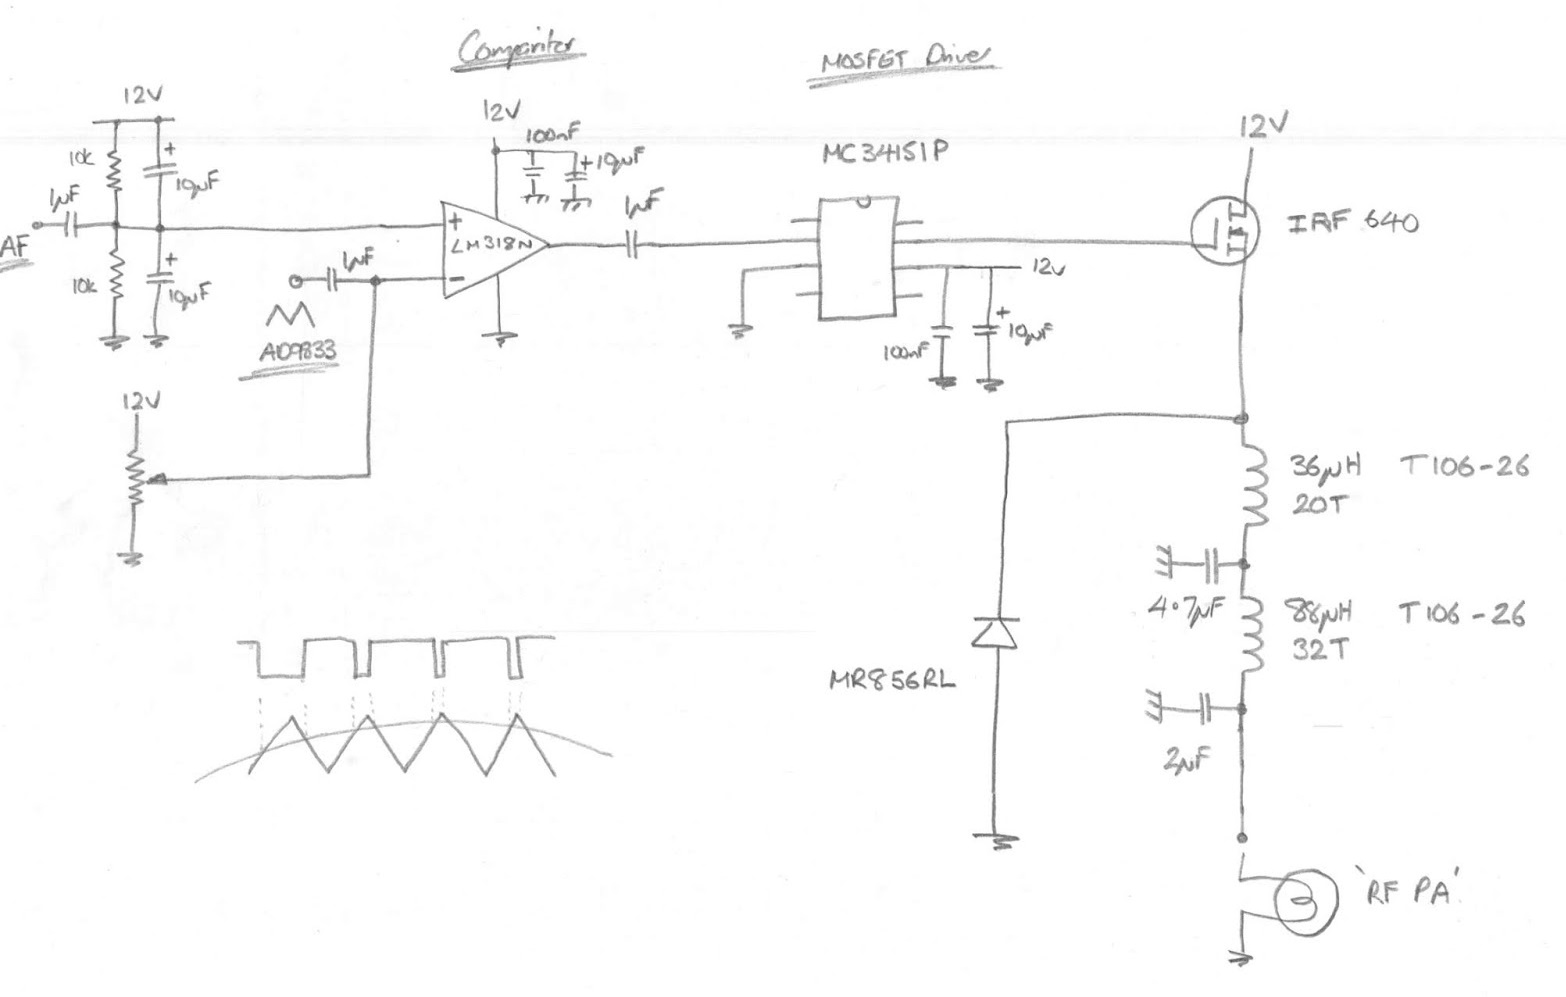 Comparitor
MOSFET Driver
12V
10k
10µF
1µF
AF
10k
10µF
12V
100nF
+10µF
+
LM318N
-
1µF
1µF
AD9833
12V
MC34151P
12V
100nF
10µF
12V
IRF 640
36µH T106-26
20T
4.7µF
88µH T106-26
32T
2µF
MR856RL
'RF PA'